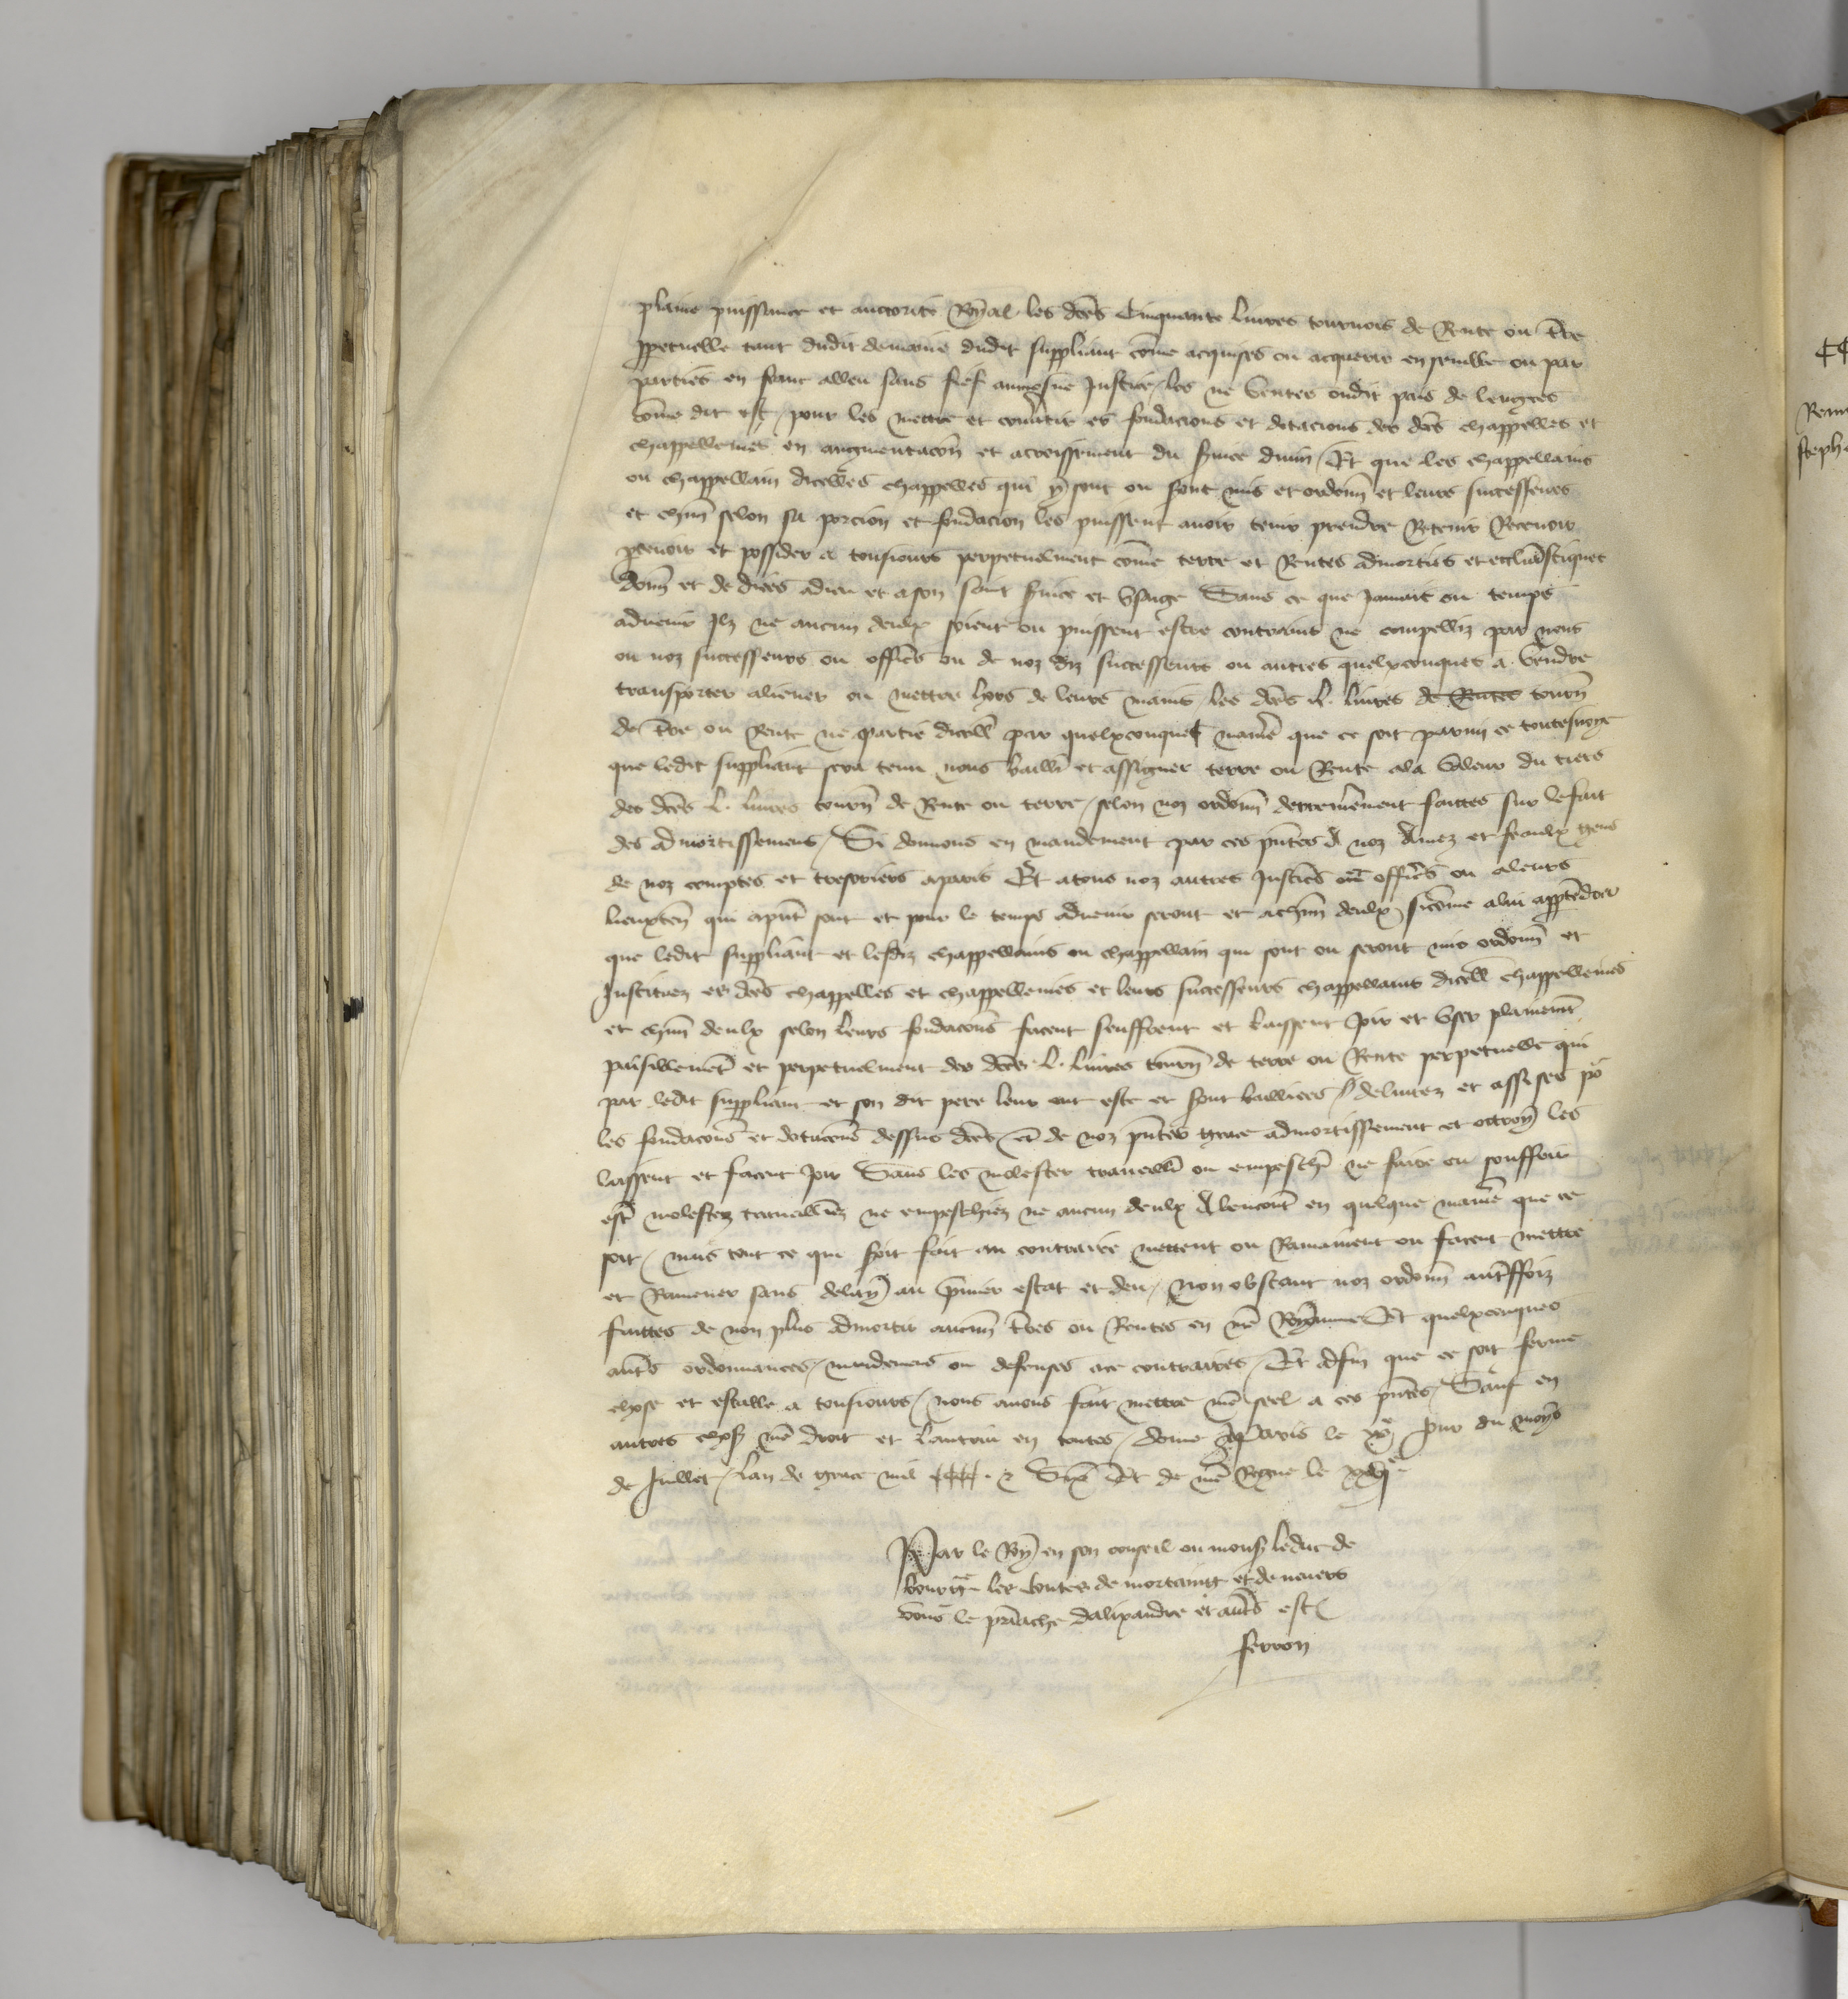 plaine puissance et auctorite Royal les dces Cinquante liures tournois de Rente ou tre
ppetuelle tant dudit demaine dudit suppliant come acquises ou acquerir ensemble ou par
parties en franc alleu sans fief ne Justice les ne oudit pais de
come dit est pour les mettre et conuertir es fondacions et dotacions des dces chappelles et
chappellenies en augmentacon et acroissement du suice diuin Et que les chappellains
ou chappellain dicelles chappelles qui y sont ou sont mis et ordonn et leurs successeurs
et chun selon sa porcion et fondacion les puissent auoir tenir prendre Retenir Receuoir
pceuoir et possider a tousiours perpetuelment come terre et Rentes admorties et
donn et dediees a dieu et a son saint suice et vsaige Sans ce que Jamais ou temps
aduenir Ilz ne aucun deulx soient ou puissent estre contrains ne compelliz par nous
ou noz successeurs ou offices ou de noz diz successeurs ou autres quelxconques a vendre
transporter aliener ou mettre hors de leurs mains les dces L. liures de Rente tourn
de tre ou Rente ne partie dicell par quelxconques maniere que ce soit parmi ce toutesuoye
que ledit suppliant sera tenu nous baill et assigner terre ou Rente ala valeur du tiers
des dces L. liures tourn de Rente ou terre selon noz ordonn derrenierement faittes sur le fait
des admortissemens Si donnons en mandement par ces pntes A noz Amez et feaulx gens
de noz comptes et tresoriers aparis Et atous noz autres Justics ou offics ou aleurs
lieuxten qui apnt sont et pour le temps aduenir seront et achun deulx sicome alui apptendra
que ledit suppliant et lesdiz chappellains ou chappellain qui sont ou seront mis ordonn et
Instituez es dces chappelles et chappellenies et leurs successeurs chappellains dicell chappellenies
et chun deulx selon leurs fondacons facent seuffrent et laissent Joir et vser plainemt
paisiblemet et perpetuelment des dces L. liures tourn de terre ou Rente perpetuelle qui
par ledit suppliant et son dit pere leur ont este et sont baillees deliurez et assises po
les fondacons et dotacons dessus dces et de noz pntes grace admortissement et octroy les
laissent et facent Joir Sans les molester trauaill ou empesch ne faire ou souffrir
est molestez trauailliez ne empeschiez ne aucun deulx A lencontre en quelque maniere que ce
soit mais tout ce qui soit fait au contraire mettent ou Ramainent ou facent mettre
et Ramener sans delay au premier estat et deu Non obstant noz ordonn autreffoiz
faittes de non plus admortir aucun tres ou Rentes en nre Royaume Et quelxconques
auts ordonnances mandemens ou defenses ace contraires Et afin que ce soit ferme
chose et estable a tousiours nous auons fait mettre nre seel a ces pntes Sauf en
autres choses nre droit et lautrui en toutes donne aParis le xxe Jour du moys
de Juillet lan de grace mil cccc. & Six Et de nre Regne le xxvje

Par le Roy en son conseil ou mons le duc de
bourge les Contes de mortaing et de neuers
vous le priache dalixandre et auts est
ferron